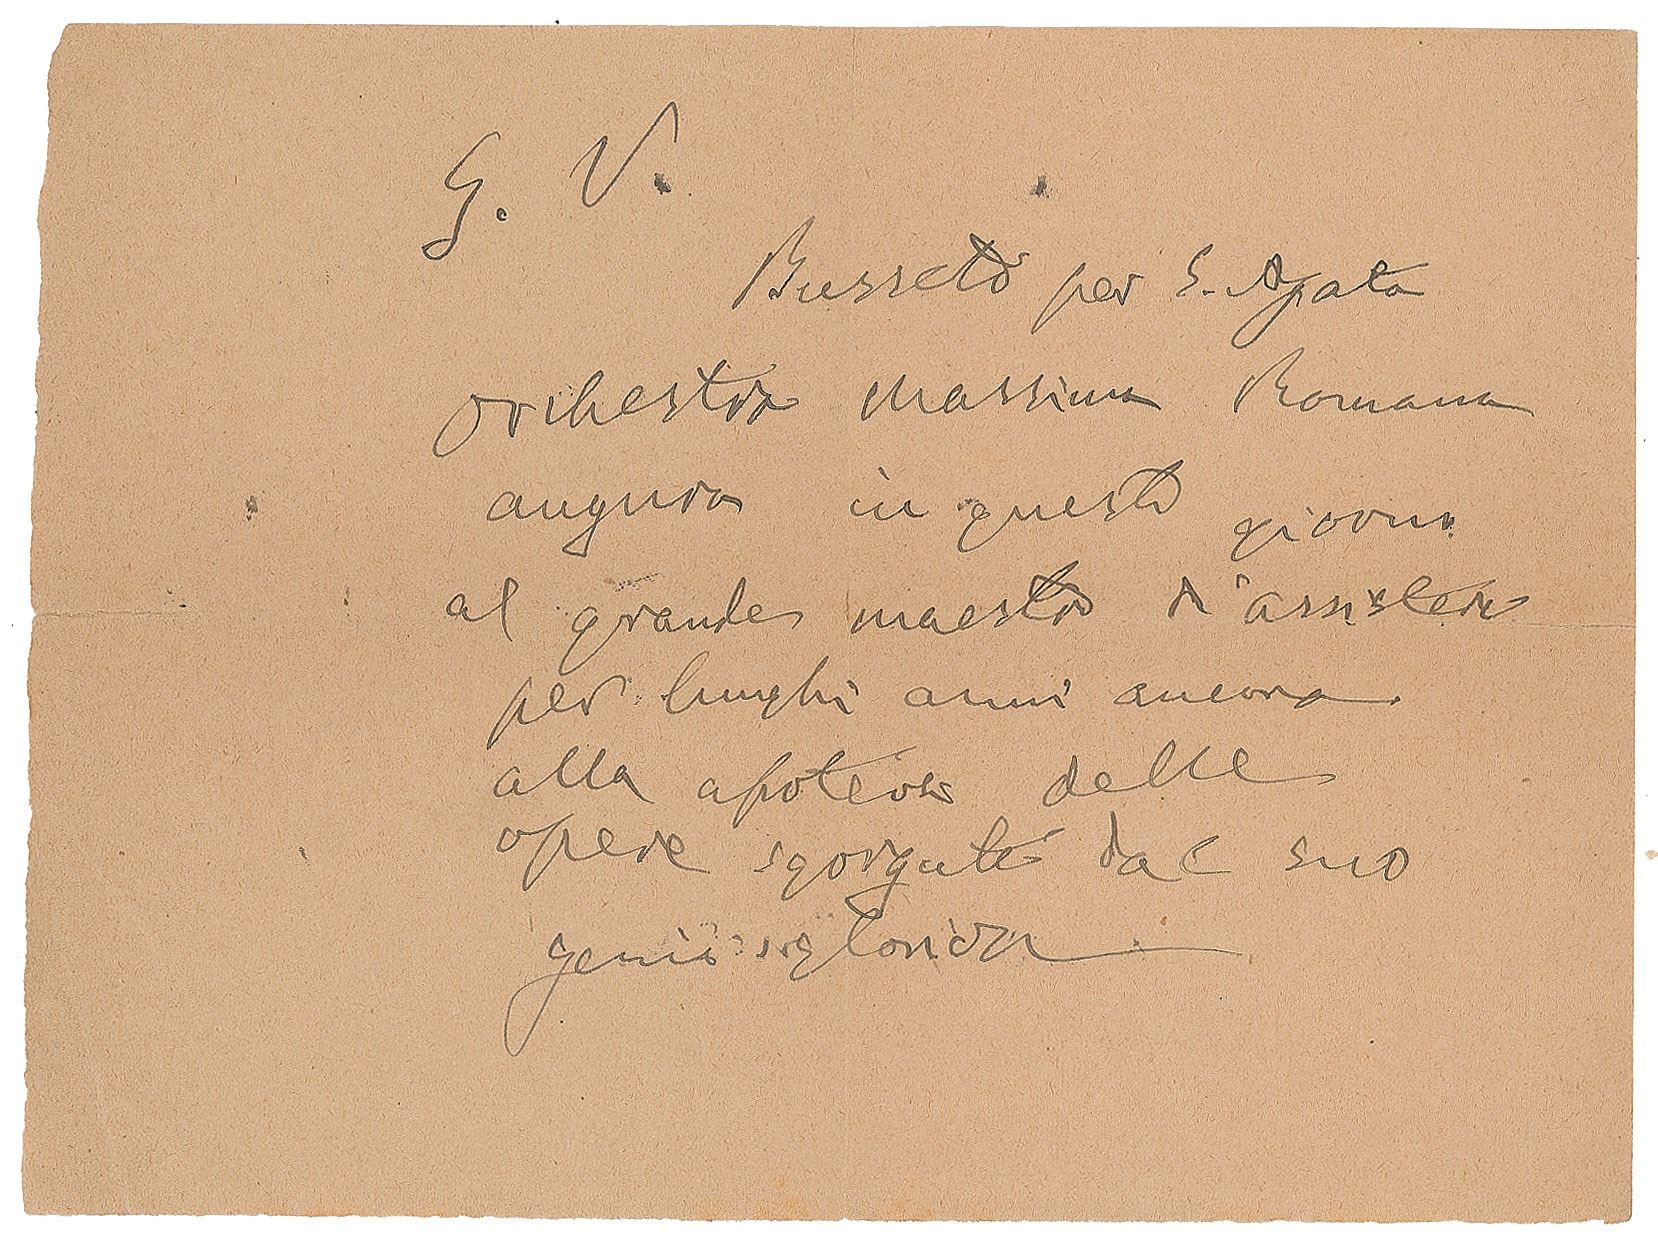 G. V.
Busseto per S. Agata
orchestra massima Romana
augura in questo giorno
al grande maestro d'assistere
per lunghi anni ancora
alla apoteosi delle
opere sgorgate dal suo
genio